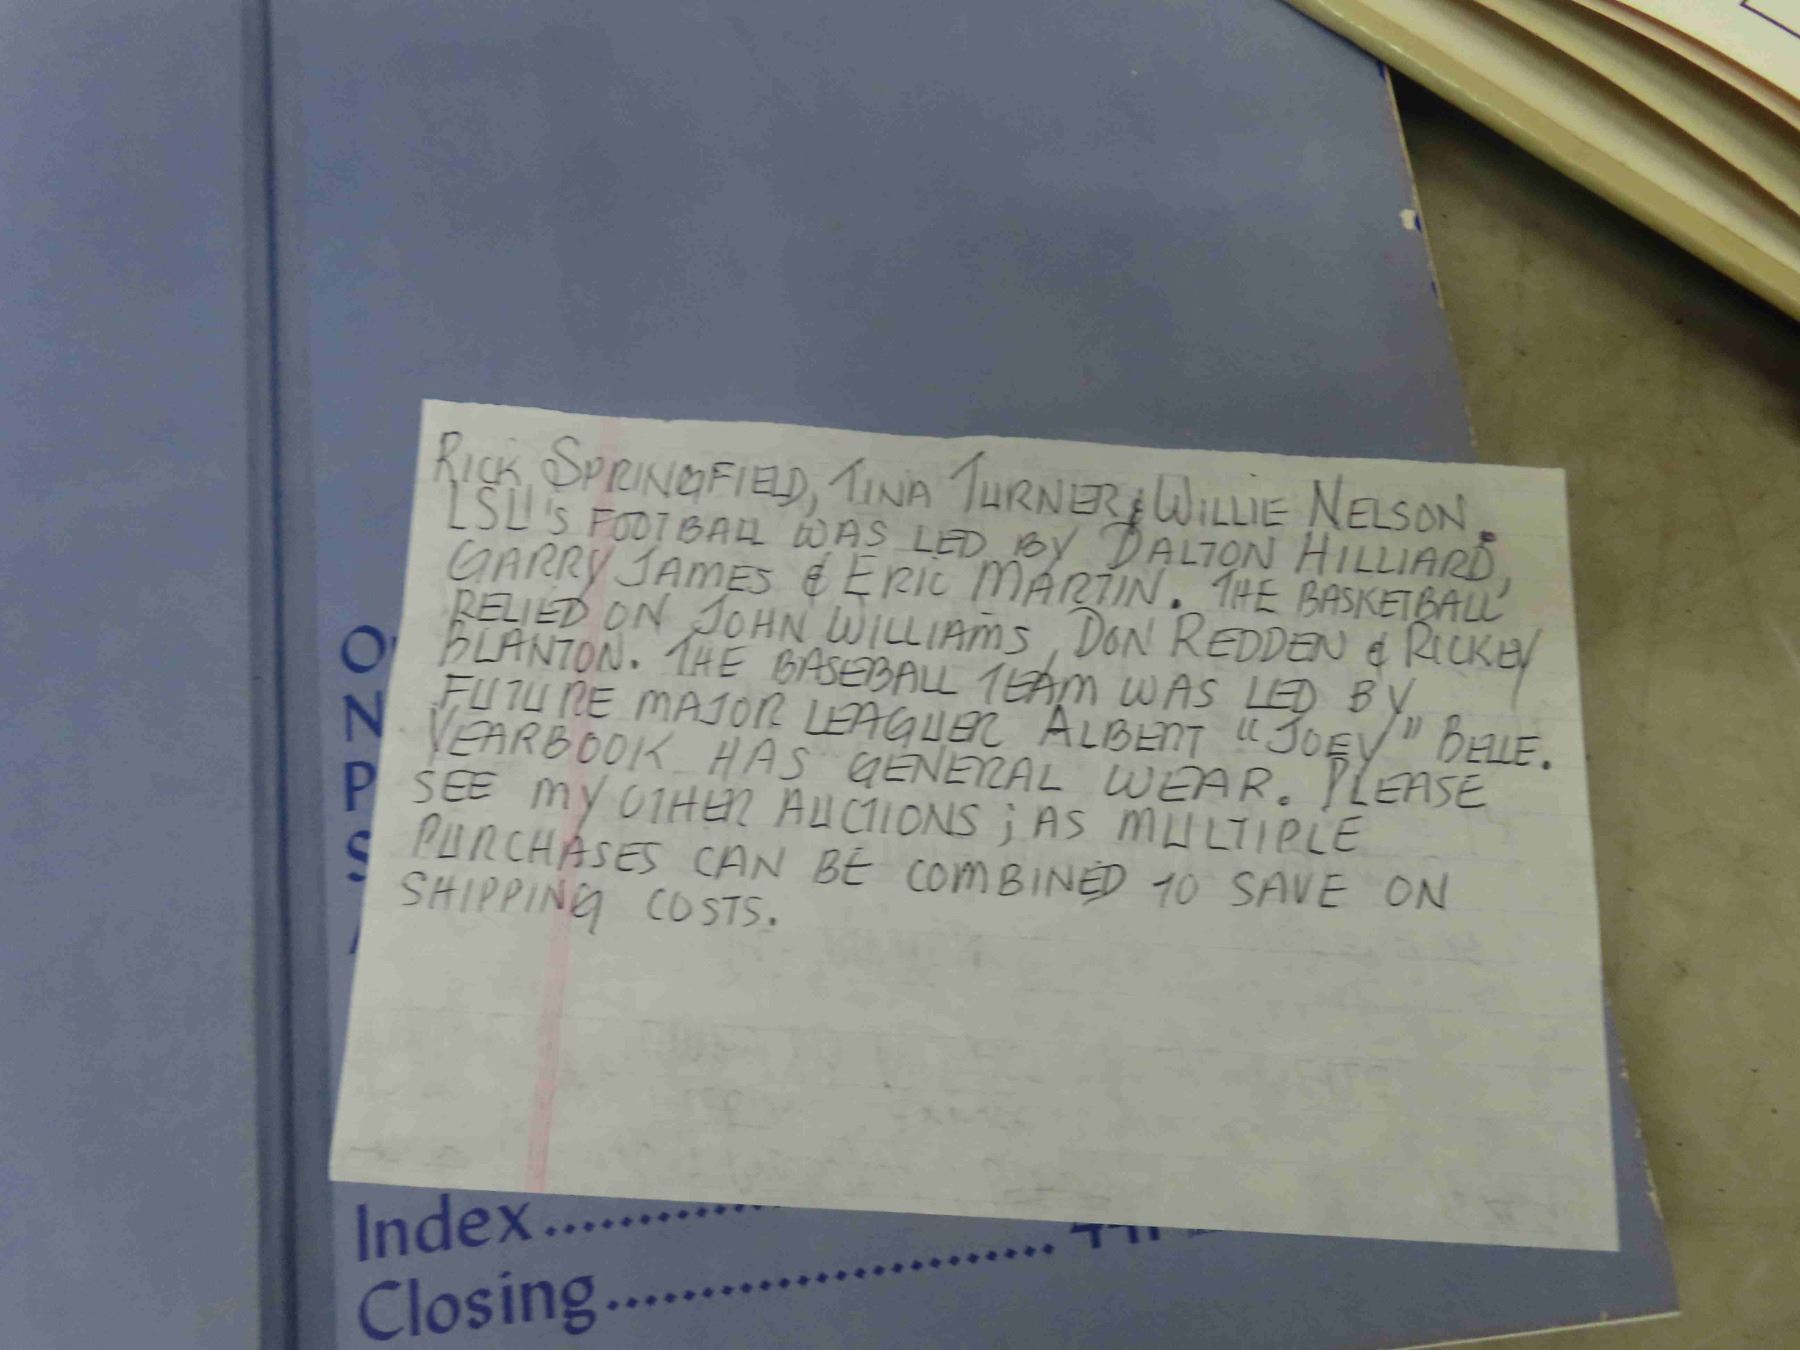 RICK SPRINGFIELD, TINA TURNER & WILLIE NELSON.
LSU'S FOOTBALL WAS LED BY DALTON HILLIARD,
GARRY JAMES & ERIC MARTIN. THE BASKETBALL
RELIED ON JOHN WILLIAMS, DON REDDEN & RICKEY
BLANTON. THE BASEBALL TEAM WAS LED BY
FUTURE MAJOR LEAGUER ALBERT "JOEY" BELLE.
YEARBOOK HAS GENERAL WEAR. PLEASE
SEE MY OTHER AUCTIONS; AS MULTIPLE
PURCHASES CAN BE COMBINED TO SAVE ON
SHIPPING COSTS.
O
N
P
S
Index..........
Closing....................